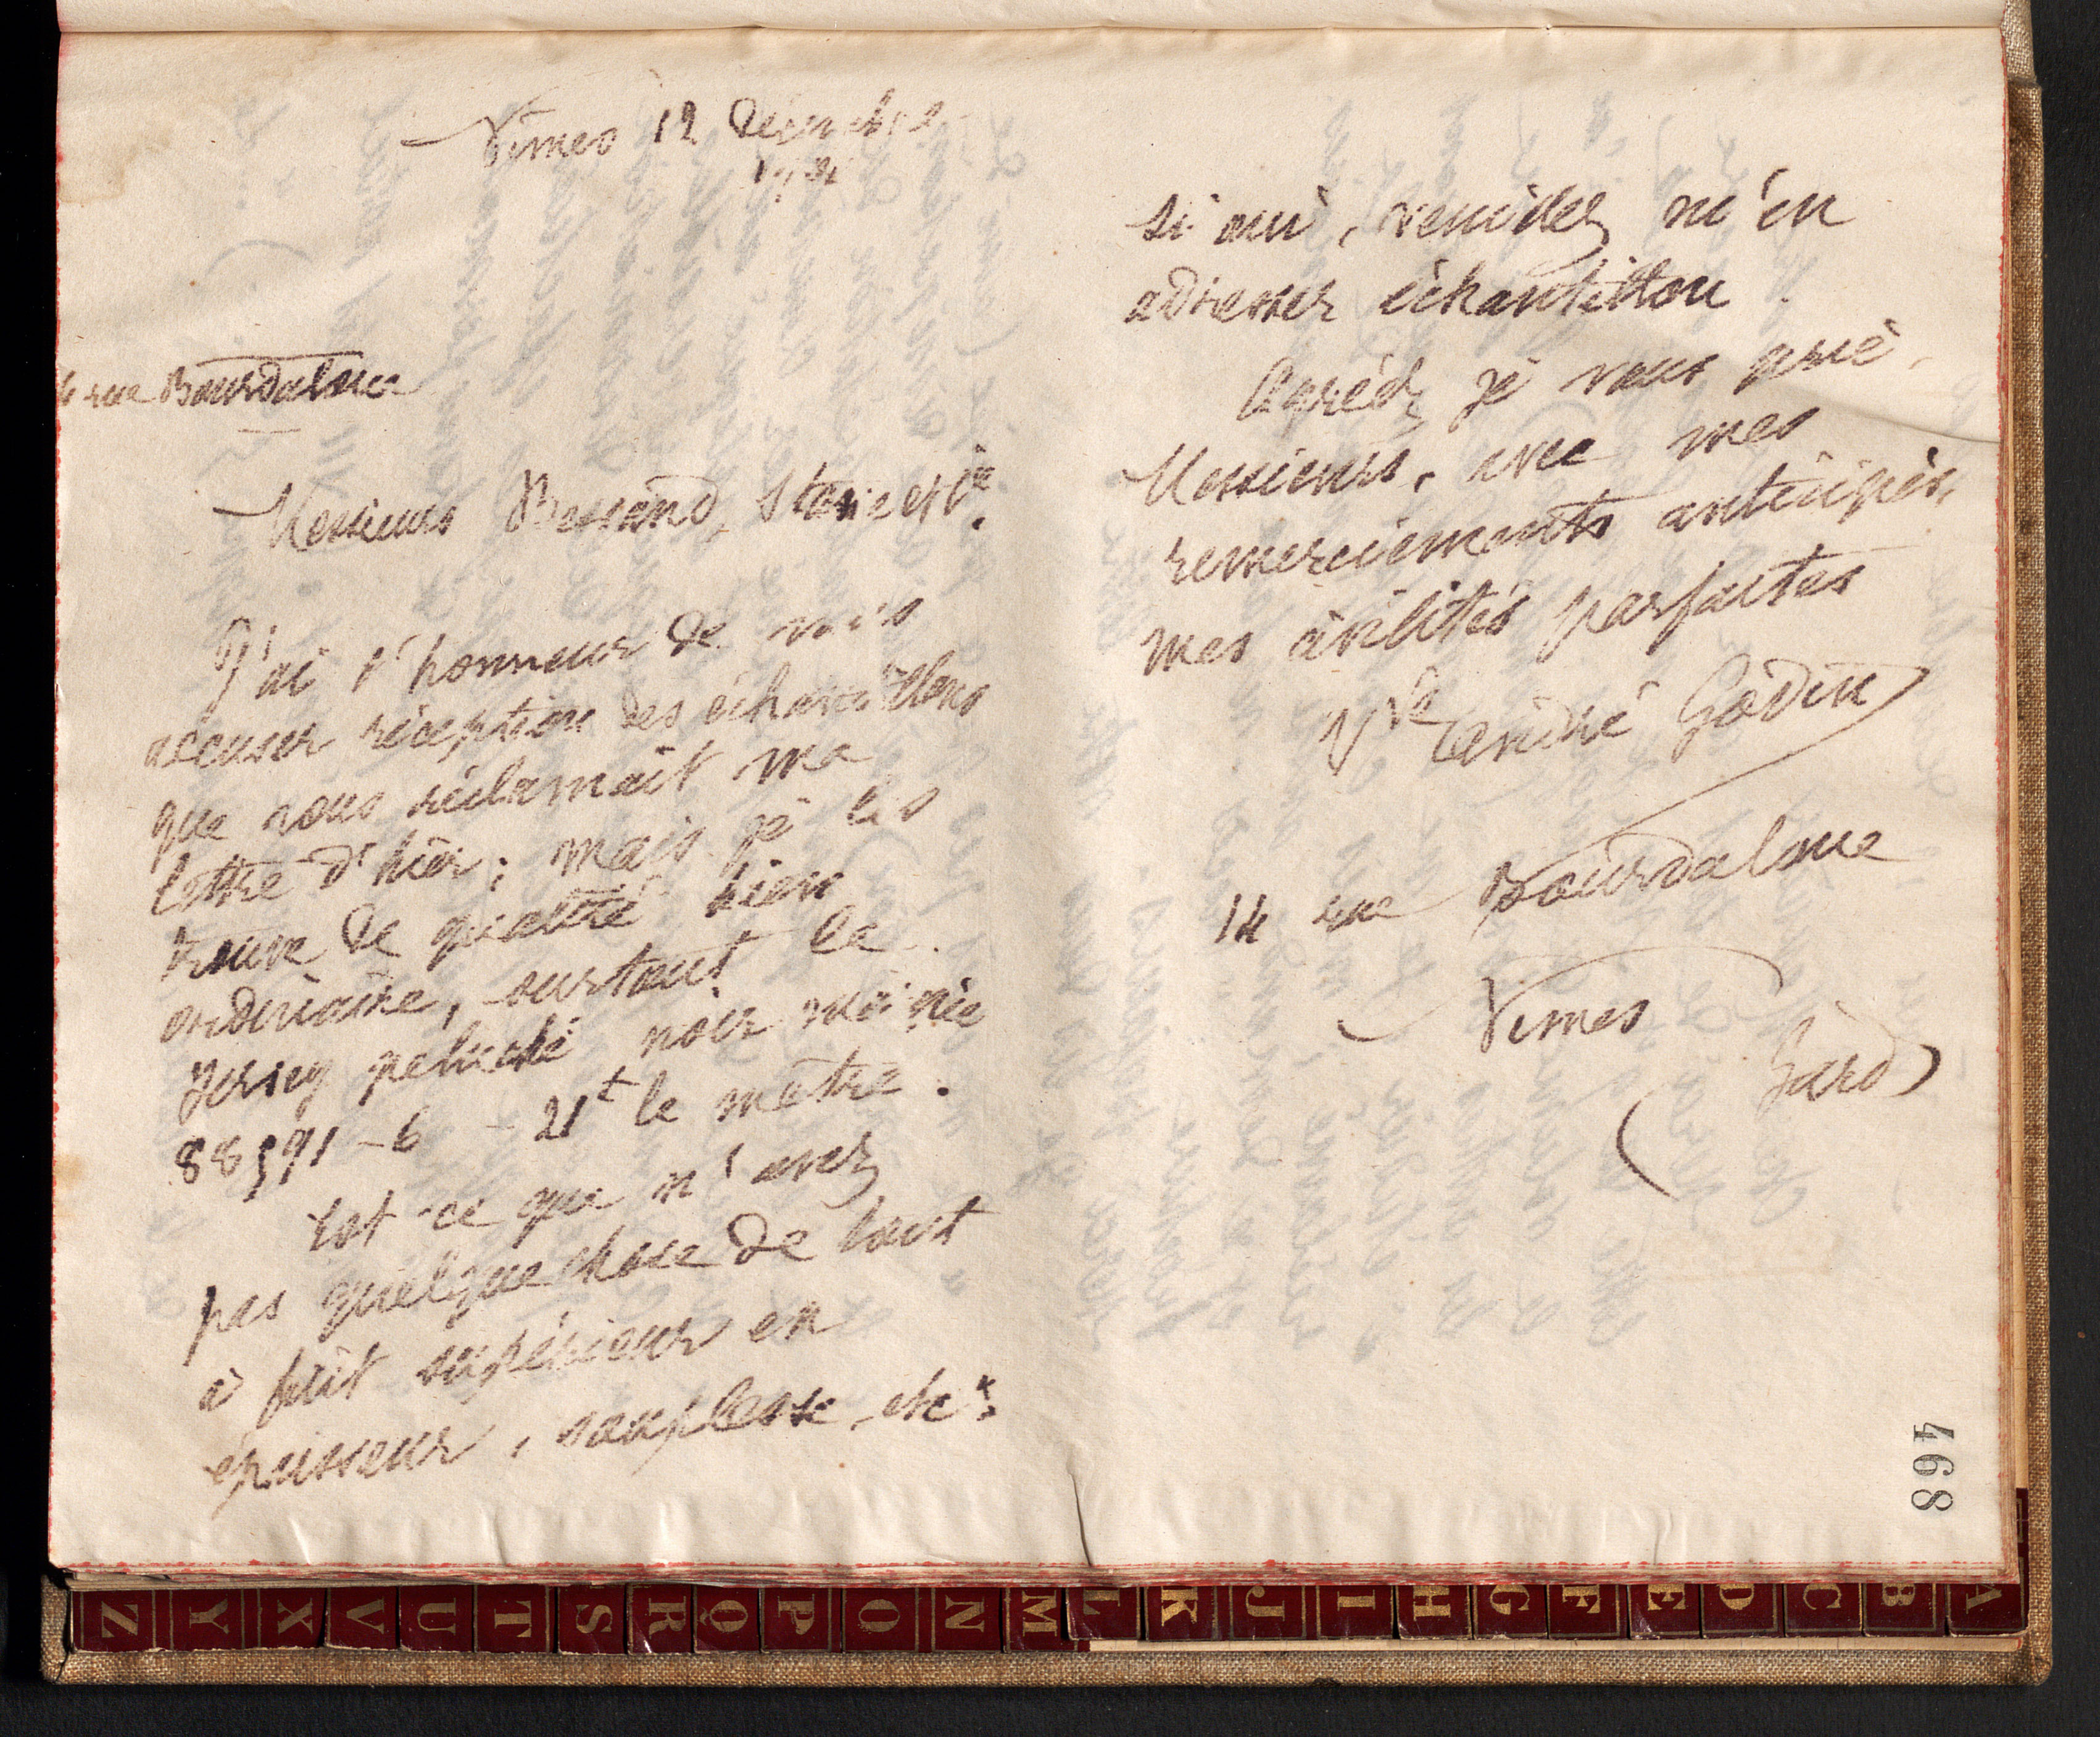 Nîmes 12 Décembre
14 rue Bourdaloue
Messieurs Bessand, Stasse et Cie.
J'ai l'honneur de vous
accuser réception des échantillons
que vous réclamait ma
lettre d'hier; mais je les
trouve de qualité bien
ordinaire, surtout le
Jersey peluché noir
88591-6 - 21f le mètre.
Est-ce que n'avez
pas quelque chose de tout
à fait supérieur en
épaisseur, souplesse, etc.
si oui, veuillez m'en
adresser échantillon.
Agréez je vous prie,
Messieurs, avec mes
remerciements anticipés,
mes civilités parfaites
Vve André Godin
14 rue Bourdaloue
Nîmes
(Gard)
468
Z Y X V U T S R Q P O N M L K J I H G F E D C B A